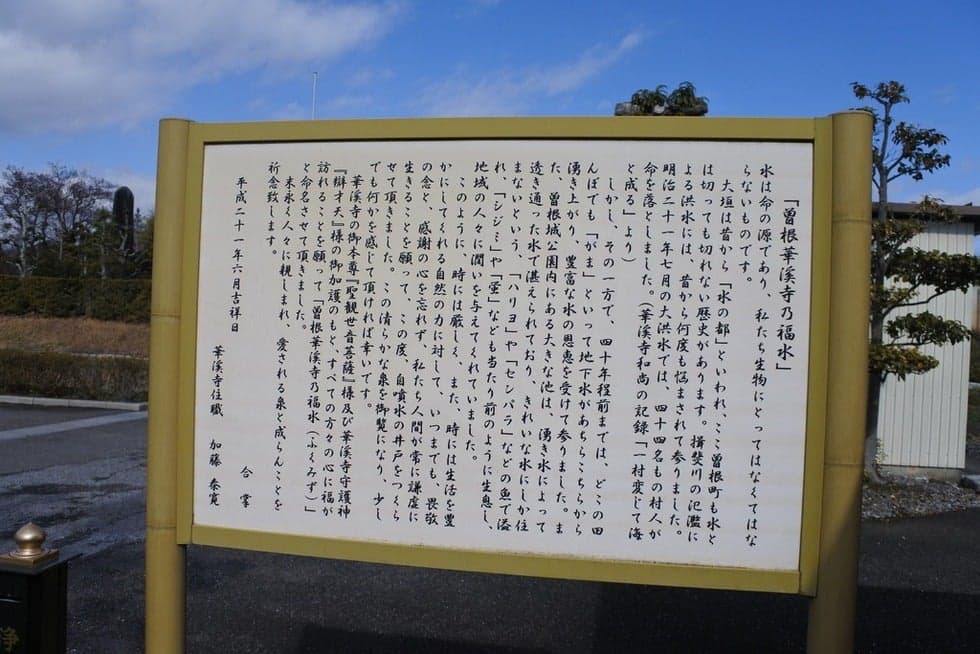 「曽根華溪寺乃福水」
水は命の源であり、私たち生物にとってはなくてはな
らないものです。
大垣は昔から「水の都」といわれ、ここ曽根町も水と
は切っても切れない歴史があります。揖斐川の氾濫に
よる洪水には、昔から何度も悩まされて参りました。
明治二十一年七月の大洪水では、四十四名もの村人が
命を落としました。（華溪寺和尚の記録「一村変じて海
と成る」より）
しかし、その一方で、四十年程前までは、どこの田
んぼでも「がま」といって地下水があちらこちらから
湧き上がり、豊富な水の恩恵を受けて参りました。ま
た、曽根城公園内にある大きな池は、湧き水によって
透き通った水で湛えられており、きれいな水にしか住
まないという、「ハリヨ」や「センパラ」などの魚で溢
れ、「シジミ」や「蛍」なども当たり前のように生息し、
地域の人々に潤いを与えてくれていました。
このように、時には厳しく、また、時には生活を豊
かにしてくれる自然の力に対して、いつまでも、畏敬
の念と、感謝の心を忘れず、私たち人間が常に謙虚に
生きることを願って、この度、自噴水の井戸をつくら
せて頂きました。この清らかな泉を御覧になり、少し
でも何かを感じて頂ければ幸いです。
華溪寺の御本尊『聖観世音菩薩』様及び華溪寺守護神
『辯才天』様の御加護のもと、すべての方々の心に福が
訪れることを願って「曽根華溪寺乃福水（ふくみず）」
と命名させて頂きました。
末永く人々に親しまれ、愛される泉と成らんことを
祈念致します。
合掌
平成二十一年六月吉祥日
華溪寺住職　加藤　泰寛
浄